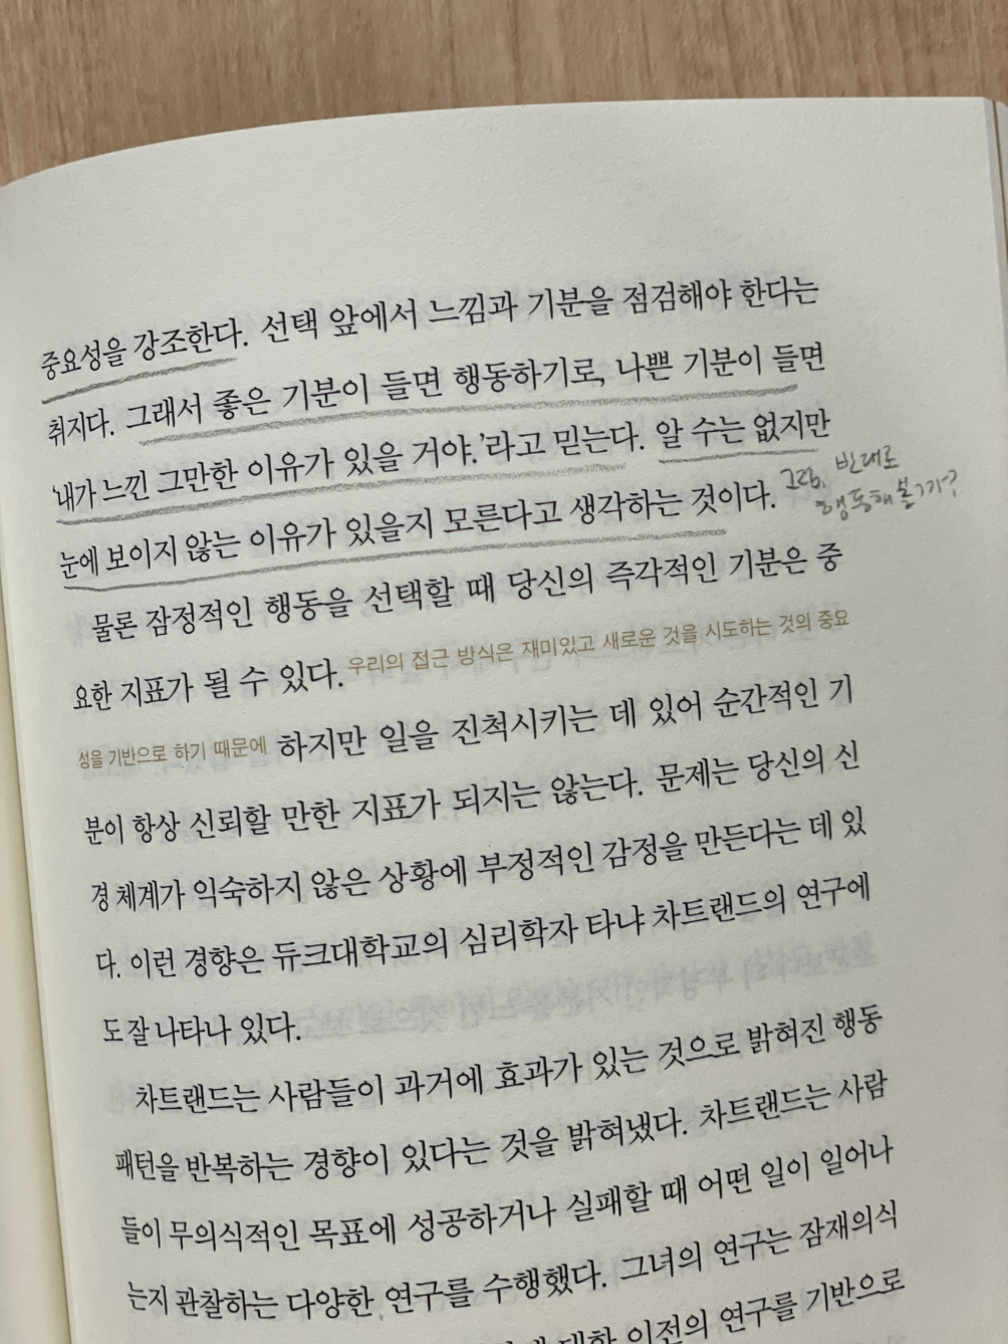 중요성을 강조한다. 선택 앞에서 느낌과 기분을 점검해야 한다는
취지다. 그래서 좋은 기분이 들면 행동하기로, 나쁜 기분이 들면
'내가 느낀 그만한 이유가 있을 거야.'라고 믿는다. 알 수는 없지만
눈에 보이지 않는 이유가 있을지 모른다고 생각하는 것이다.
그럼, 반대로
행동해 볼까?
물론 잠정적인 행동을 선택할 때 당신의 즉각적인 기분은 중
요한 지표가 될 수 있다. 우리의 접근 방식은 재미있고 새로운 것을 시도하는 것의 중요
성을 기반으로 하기 때문에 하지만 일을 진척시키는 데 있어 순간적인 기
분이 항상 신뢰할 만한 지표가 되지는 않는다. 문제는 당신의 신
경 체계가 익숙하지 않은 상황에 부정적인 감정을 만든다는 데 있
다. 이런 경향은 듀크대학교의 심리학자 타냐 차트랜드의 연구에
도 잘 나타나 있다.
차트랜드는 사람들이 과거에 효과가 있는 것으로 밝혀진 행동
패턴을 반복하는 경향이 있다는 것을 밝혀냈다. 차트랜드는 사람
들이 무의식적인 목표에 성공하거나 실패할 때 어떤 일이 일어나
는지 관찰하는 다양한 연구를 수행했다. 그녀의 연구는 잠재의식
대한 이전의 연구를 기반으로